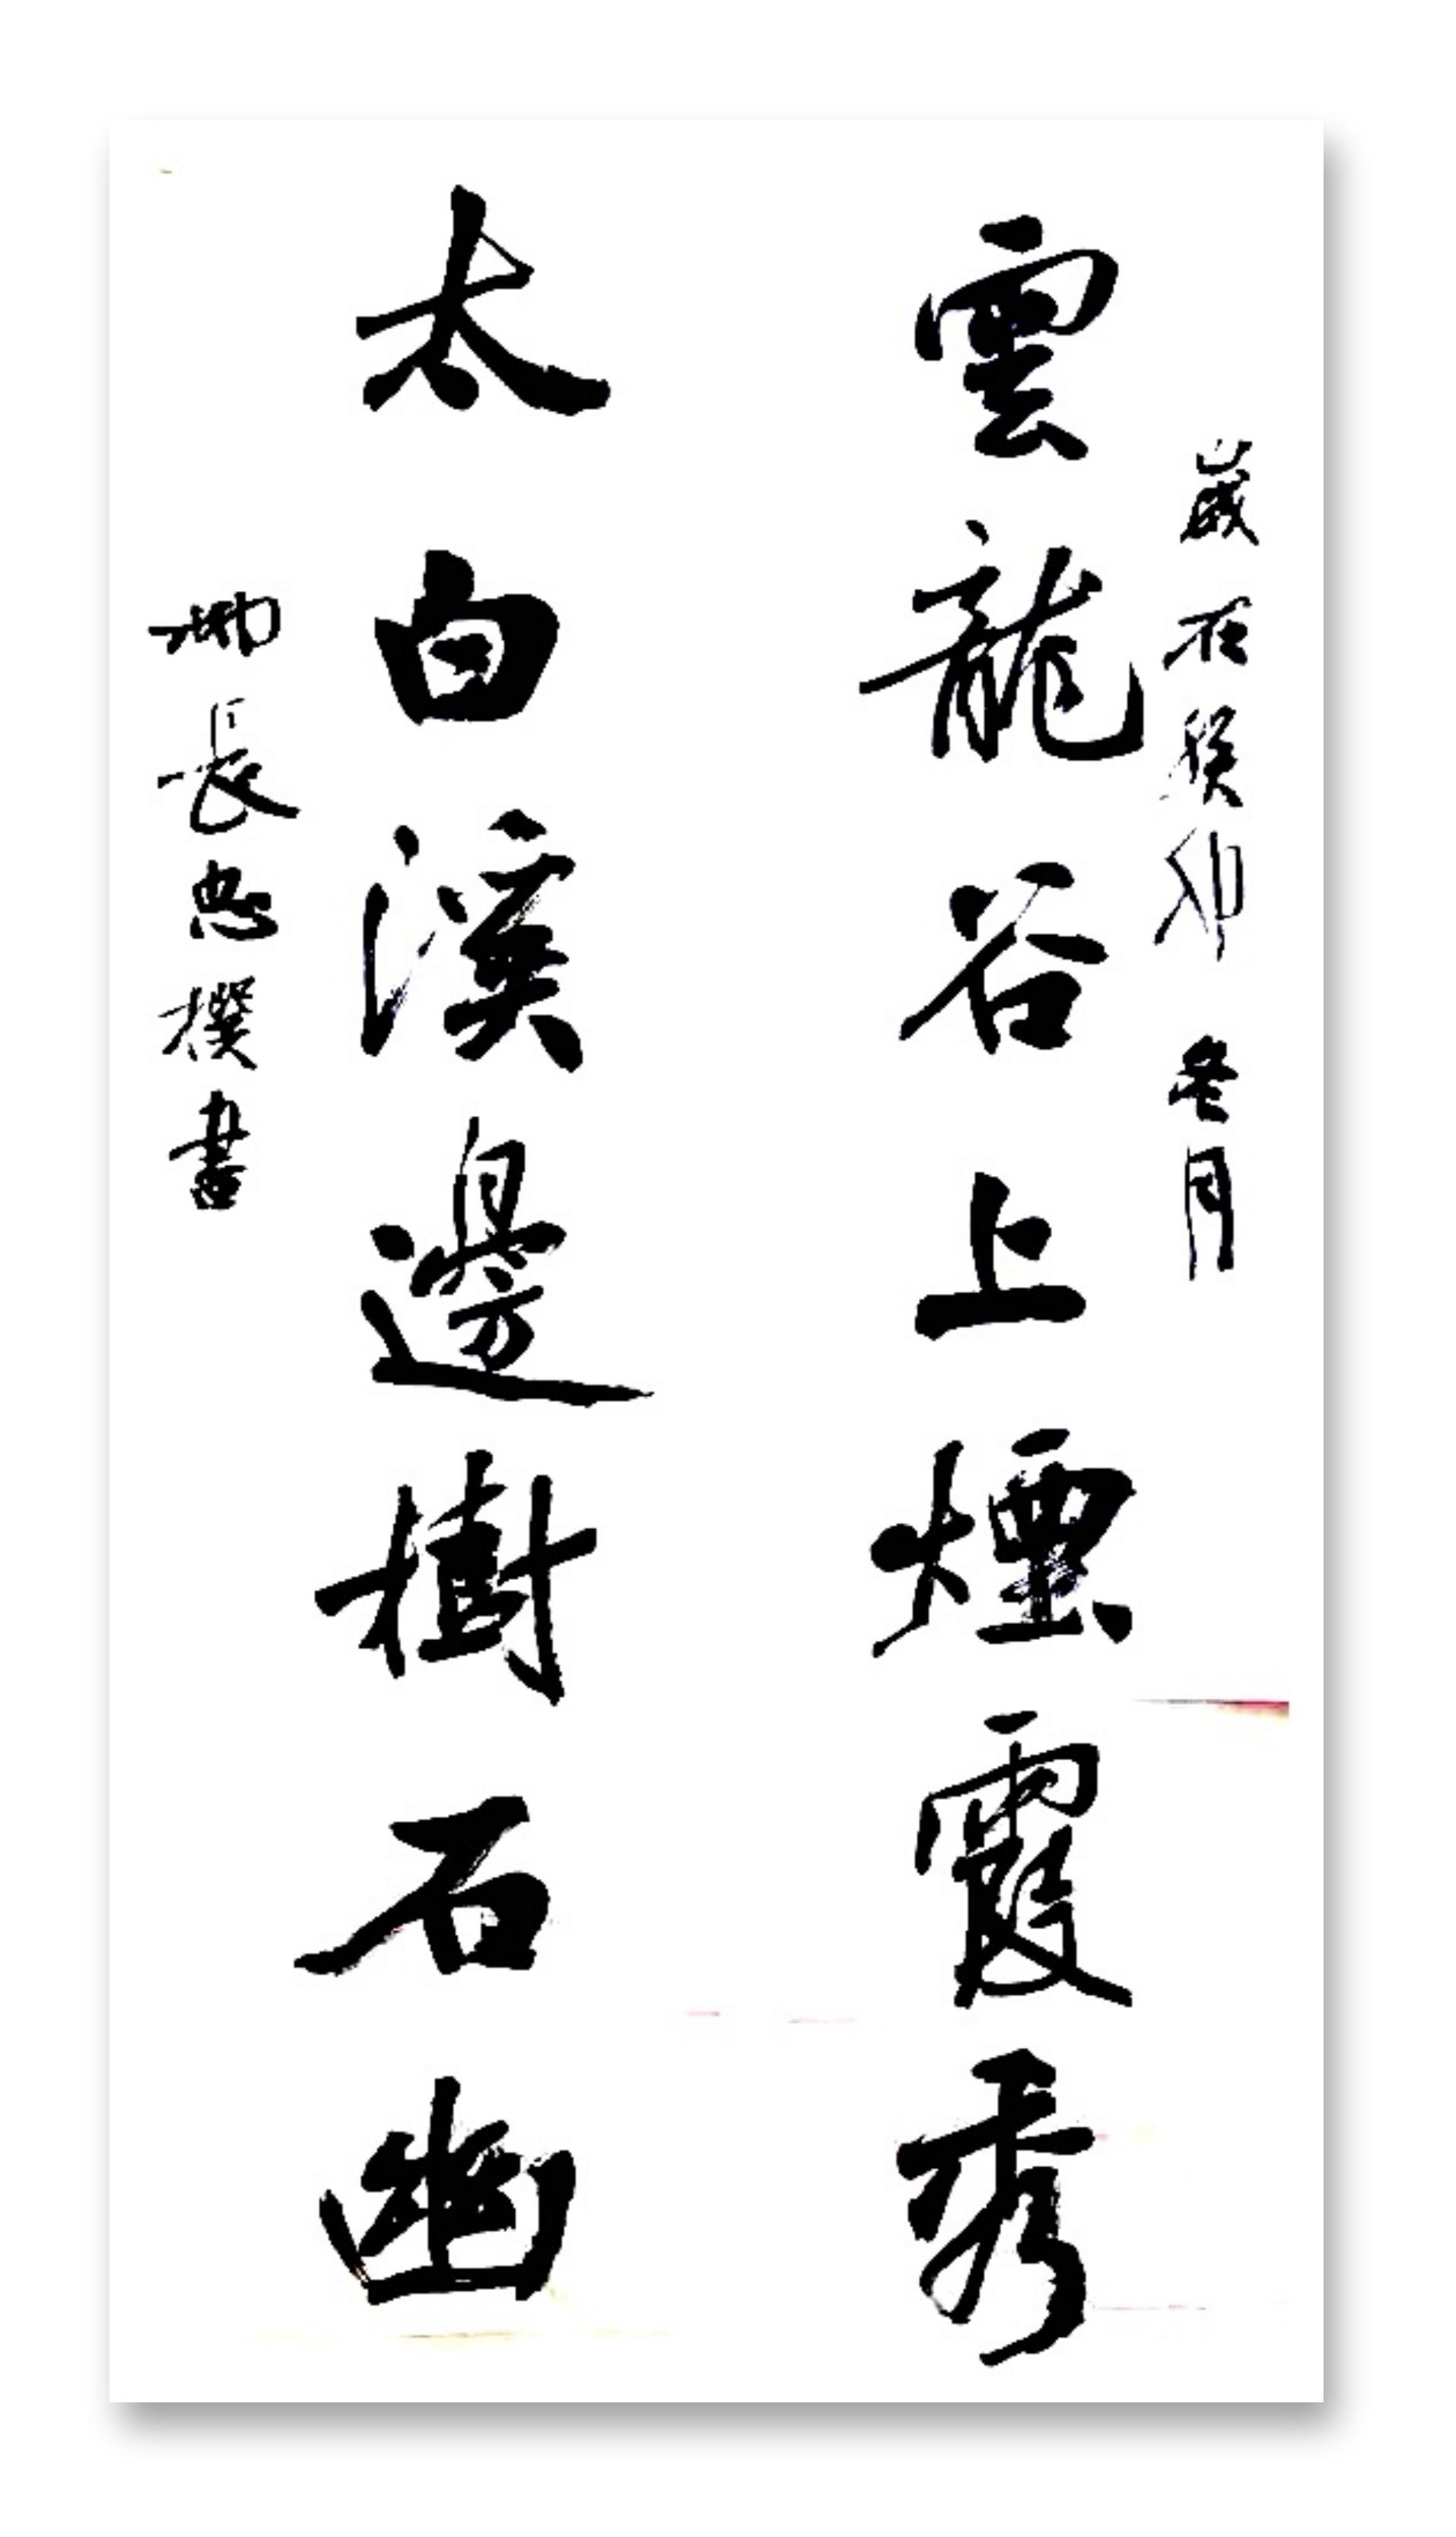 歲在癸卯冬月
雲龍谷上煙霞秀
太白溪邊樹石幽
柳長忠撰書